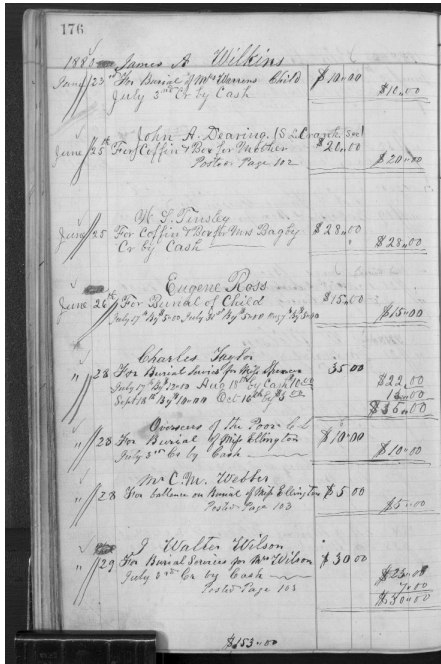 176
1880 James A Wilkins
June 23rd For Burial of Mrs Warrens Child $10.00
July 3rd Cr by Cash $10.00
John A. Dearing (S L Crank Sec)
June 25th For Coffin & Box for Mother $20.00
Posted Page 102 $20.00
W. S. Tinsley
June 25 For Coffin & Box for Mrs Bagby $28.00
Cr by Cash $28.00
Eugene Ross
June 26th For Burial of Child $15.00
July 17th By $5.00 July 31st By $5.00 Aug 7th By $5.00 $15.00
Charles Taylor
" 28 For Burial Servis for Miss Spencer 35.00
July 17th By 12.00 Aug 18th by Cash 10.00 $22.00
Sept 18th By $10.00 Oct 16th By $3.00
Overseers of the Poor
" 28 For Burial of Miss Ellington $10.00
July 3rd Cr by Cash $10.00
Mr C. M. Webber
" 28 For ballence on Burial of Miss Ellington $5.00
Posted Page 103 $5.00
J Walter Wilson
" 29 For Burial Services for Mrs Wilson $30.00
July 3rd Cr by Cash $23.00
Posted Page 103 7.00
$30.00
$153.00